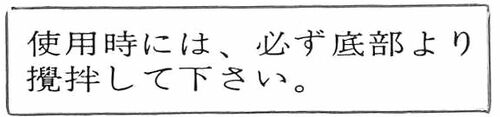 使用時には、必ず底部より
攪拌して下さい。